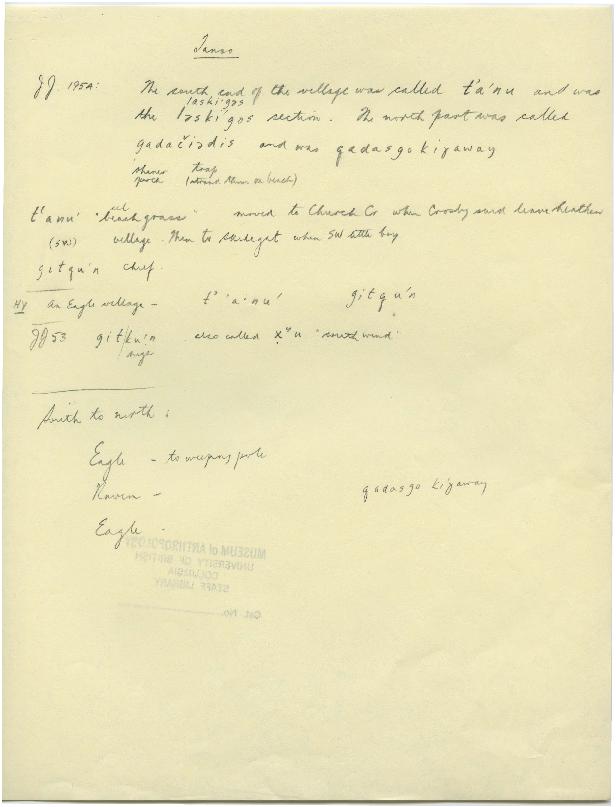 Tanoo
JJ. 195A: The south end of the village was called t'a'nu and was
łaski'gos
the łəski'gos section. The north part was called
gadačiədis and was qadasgo kigaway
trap
(strand them on beach)
t'anu' "eel beach grass" moved to Church Cr when Crosby said leave heathen
(SW) village. Then to Skidegat when SW little boy
gitqu'n chief.
HY An Eagle village - t' 'a·nu' gitqu'n
JJ 53 git/ku'n also called x̣ʷu "south wind"
South to north:
Eagle - to weeping pole
Raven - qadasgo kigaway
Eagle -
MUSEUM of ANTHROPOLOGY
UNIVERSITY OF BRITISH
COLUMBIA
STAFF LIBRARY
Cat. No.